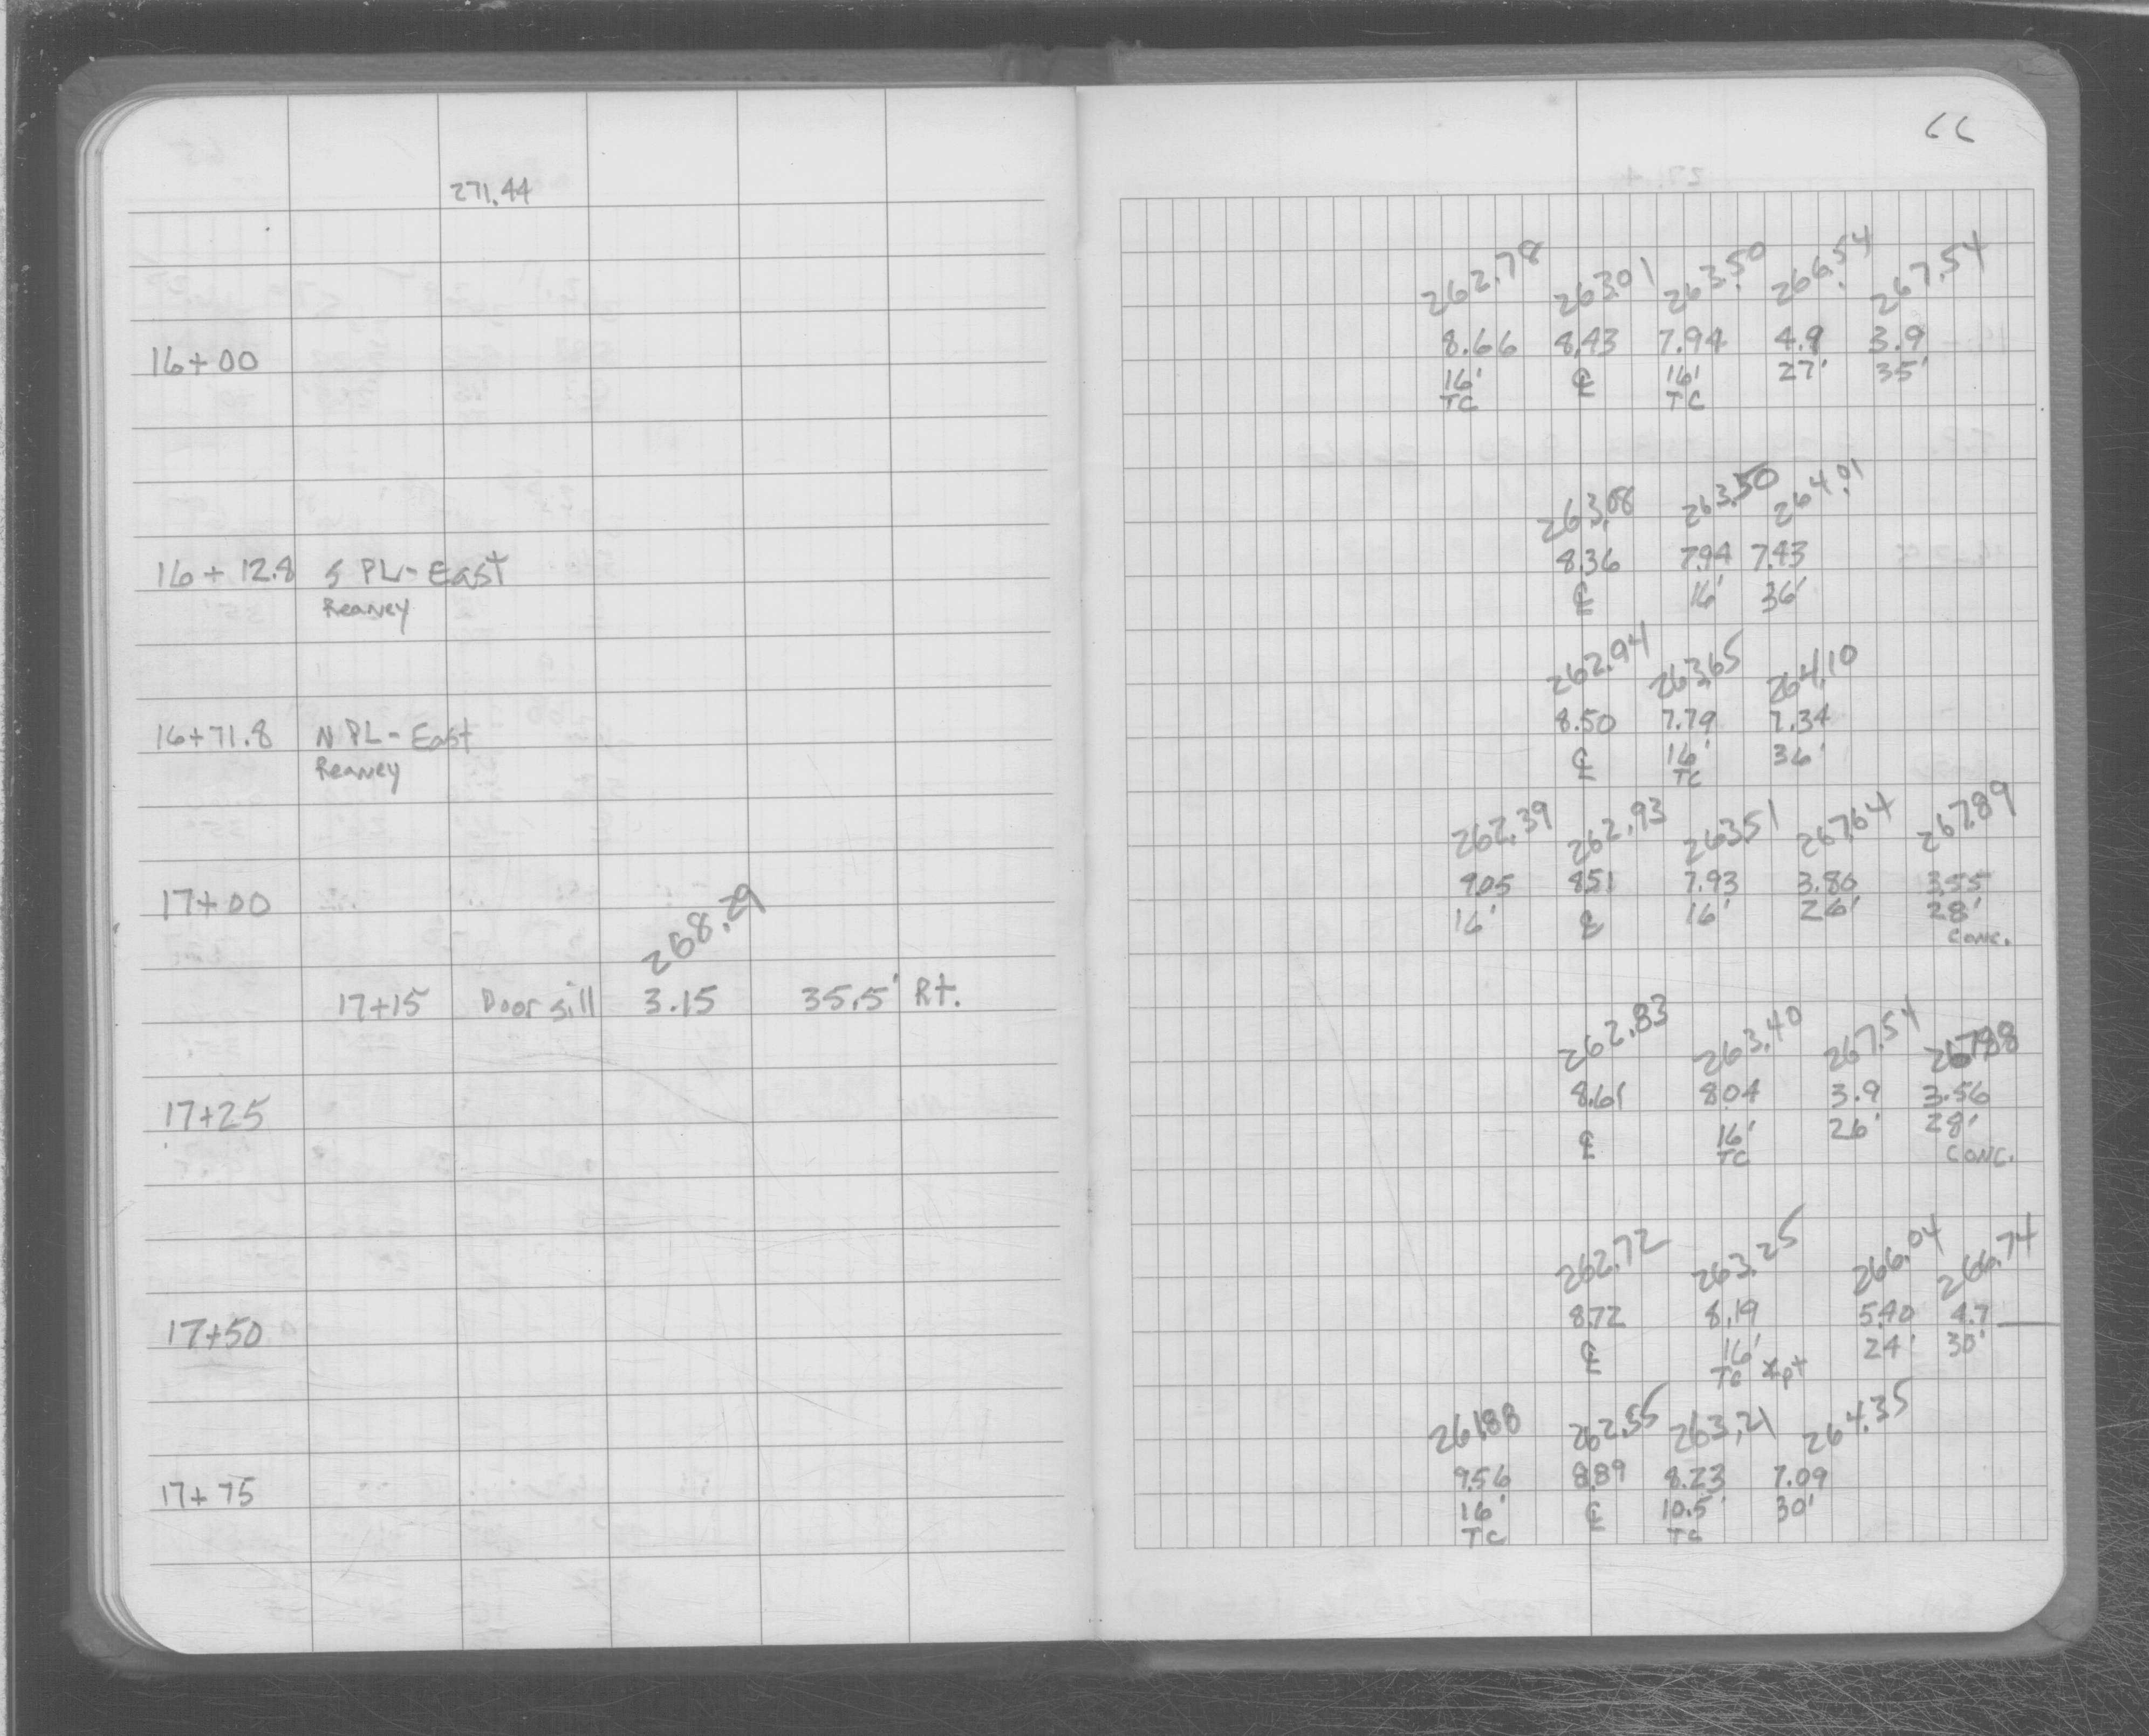 271.44
16+00
16+12.8 S PL-East
Reaney
16+71.8 N PL-East
Reaney
17+00
268.29
17+15 Door sill 3.15 35.5' Rt.
17+25
17+50
17+75
66
262.78 263.01 263.50 266.54 267.54
8.66 8.43 7.94 4.9 3.9
16' ℄ 16' 27' 35'
TC TC
263.08 263.50 264.01
8.36 7.94 7.43
℄ 16' 36'
262.94 263.65 264.10
8.50 7.79 7.34
℄ 16' 36'
TC
262.39 262.93 263.51 267.64 267.89
9.05 8.51 7.93 3.80 3.55
16' ℄ 16' 26' 28'
CONC.
262.83 263.40 267.54 267.88
8.61 8.04 3.9 3.56
℄ 16' 26' 28'
TC CONC.
262.72 263.25 266.04 266.74
8.72 8.19 5.40 4.7
℄ 16' 24' 30'
TC
261.88 262.55 263.21 264.35
9.56 8.89 8.23 7.09
16' ℄ 10.5' 30'
TC TC